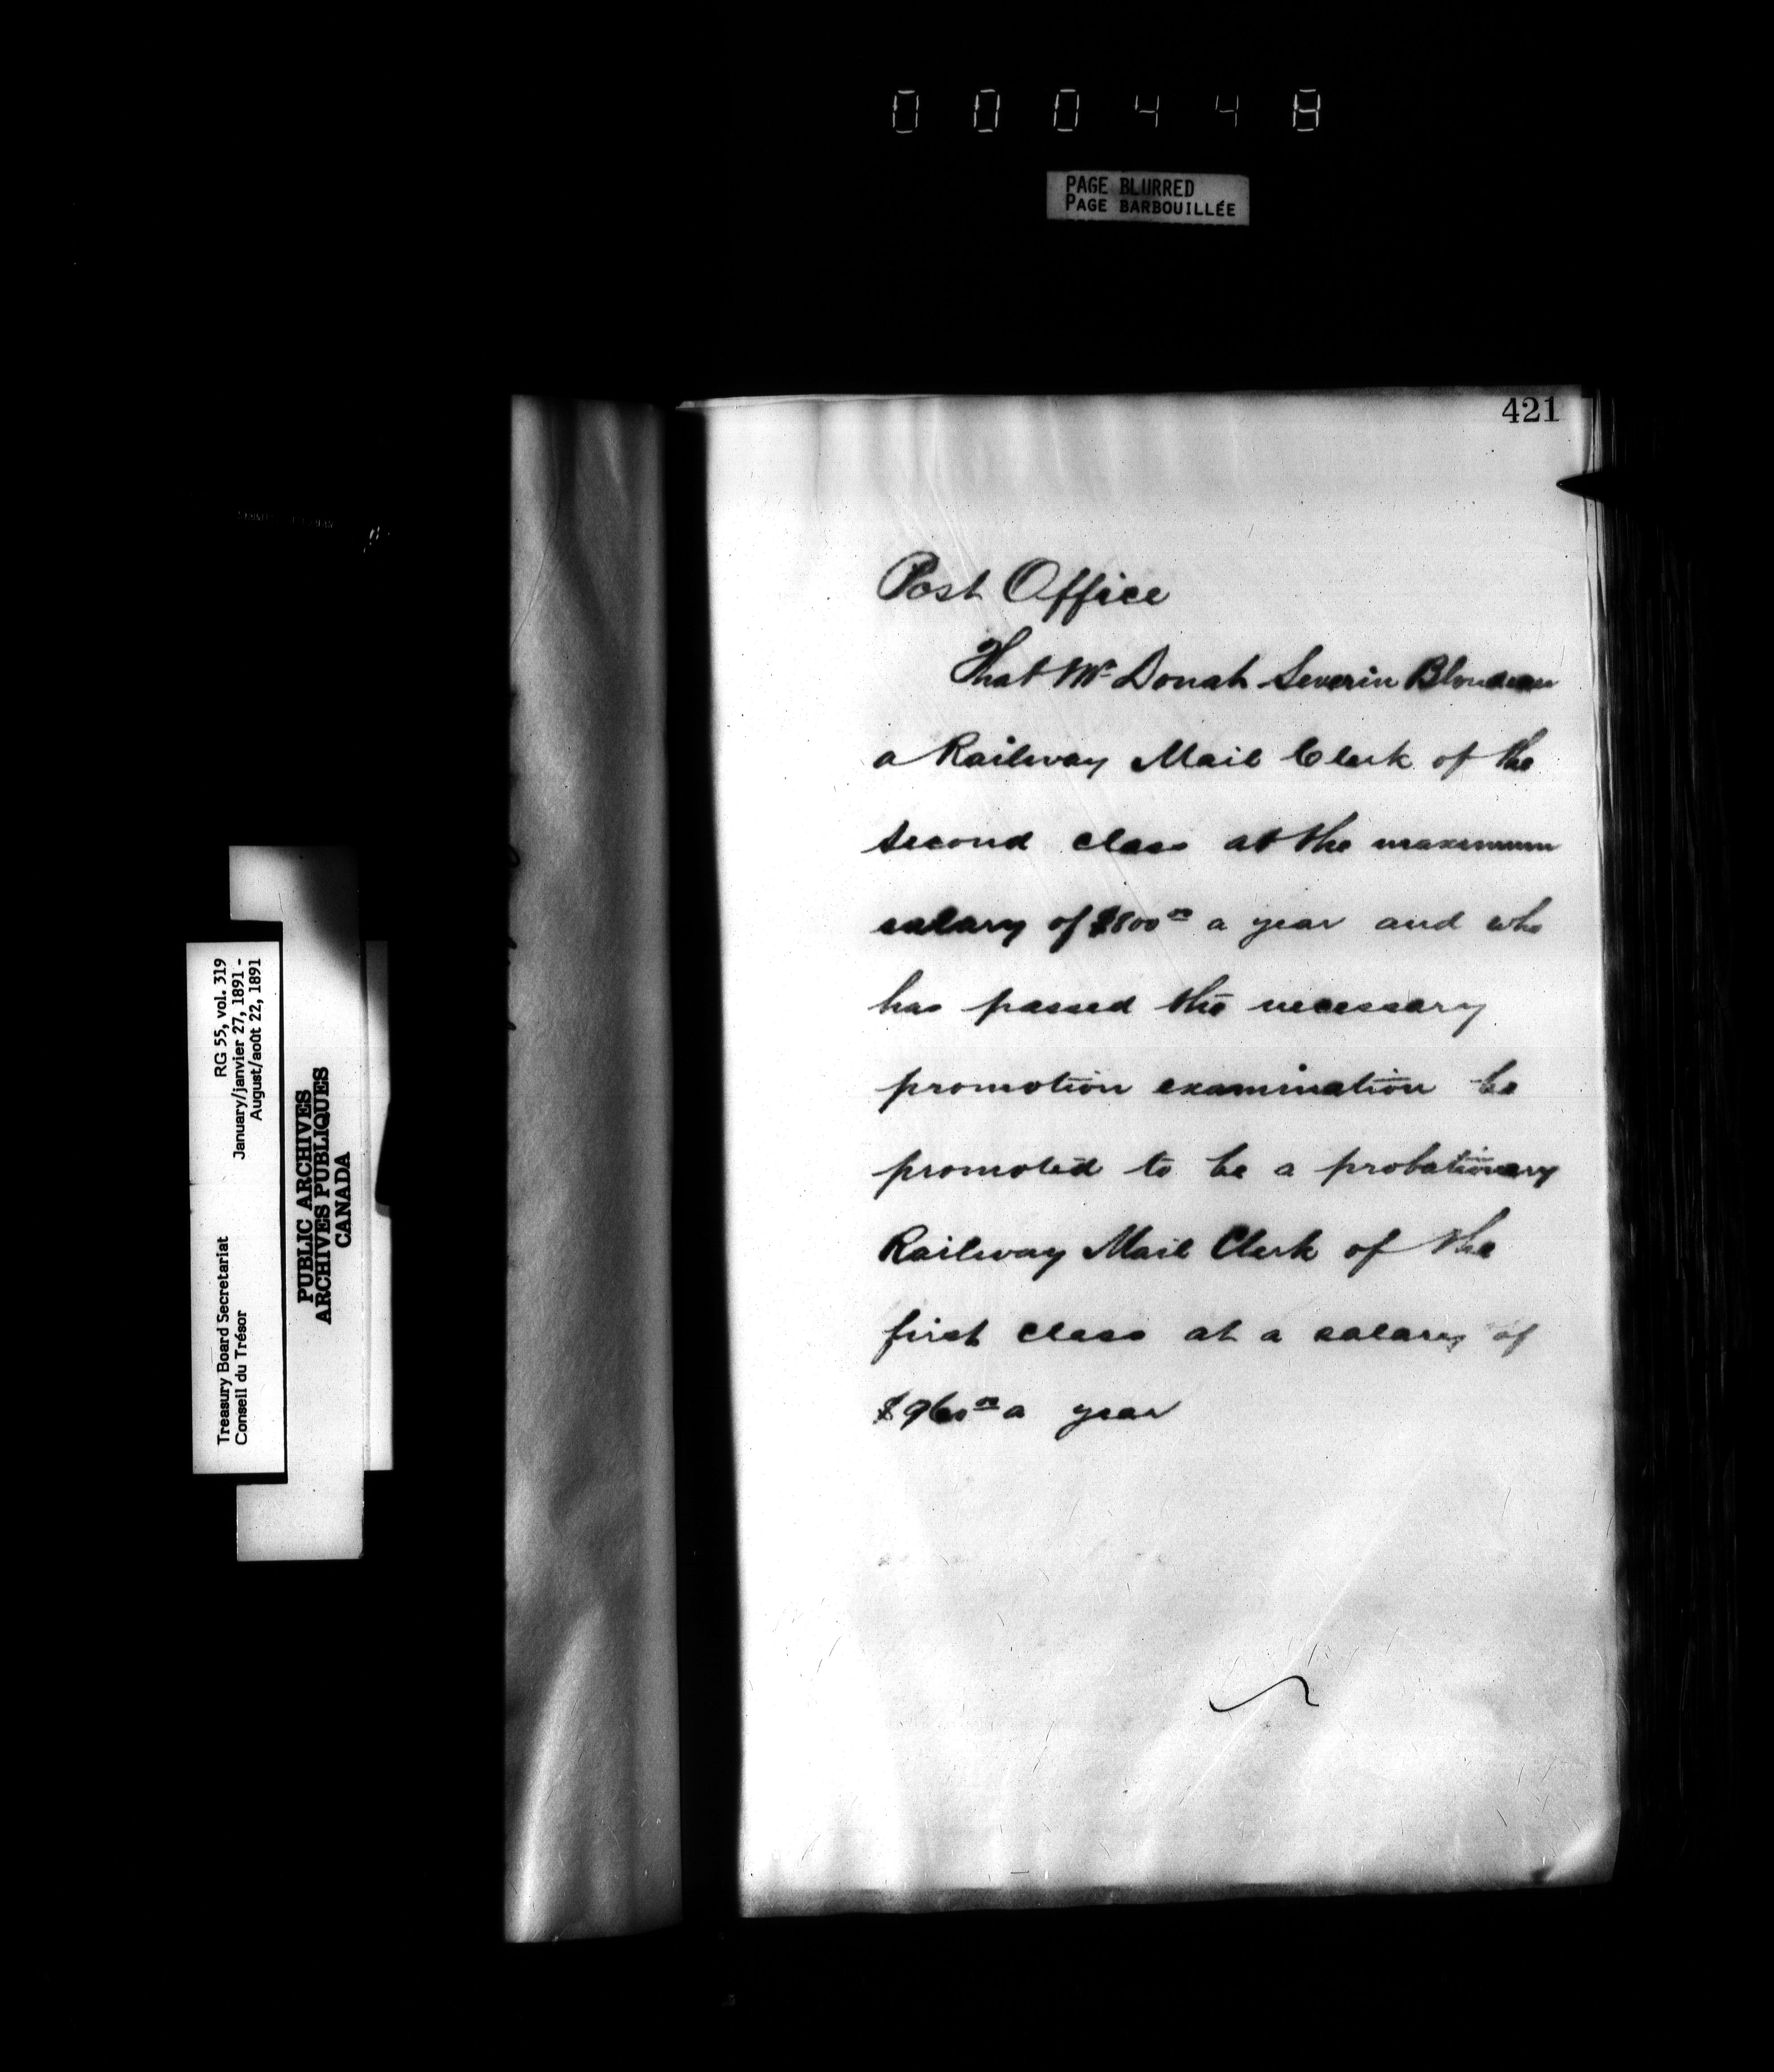 000448
PAGE BLURRED
PAGE BARBOUILLÉE
421
Post Office
That Mr Donat Severin Blondeau
a Railway Mail Clerk of the
second class at the maximum
salary of $800 00 a year and who
has passed the necessary
promotion examination be
promoted to be a probationary
Railway Mail Clerk of the
first class at a salary of
$960 00 a year
Treasury Board Secretariat
Conseil du Trésor
RG 55, vol. 319
January/janvier 27, 1891 -
August/août 22, 1891
PUBLIC ARCHIVES
ARCHIVES PUBLIQUES
CANADA